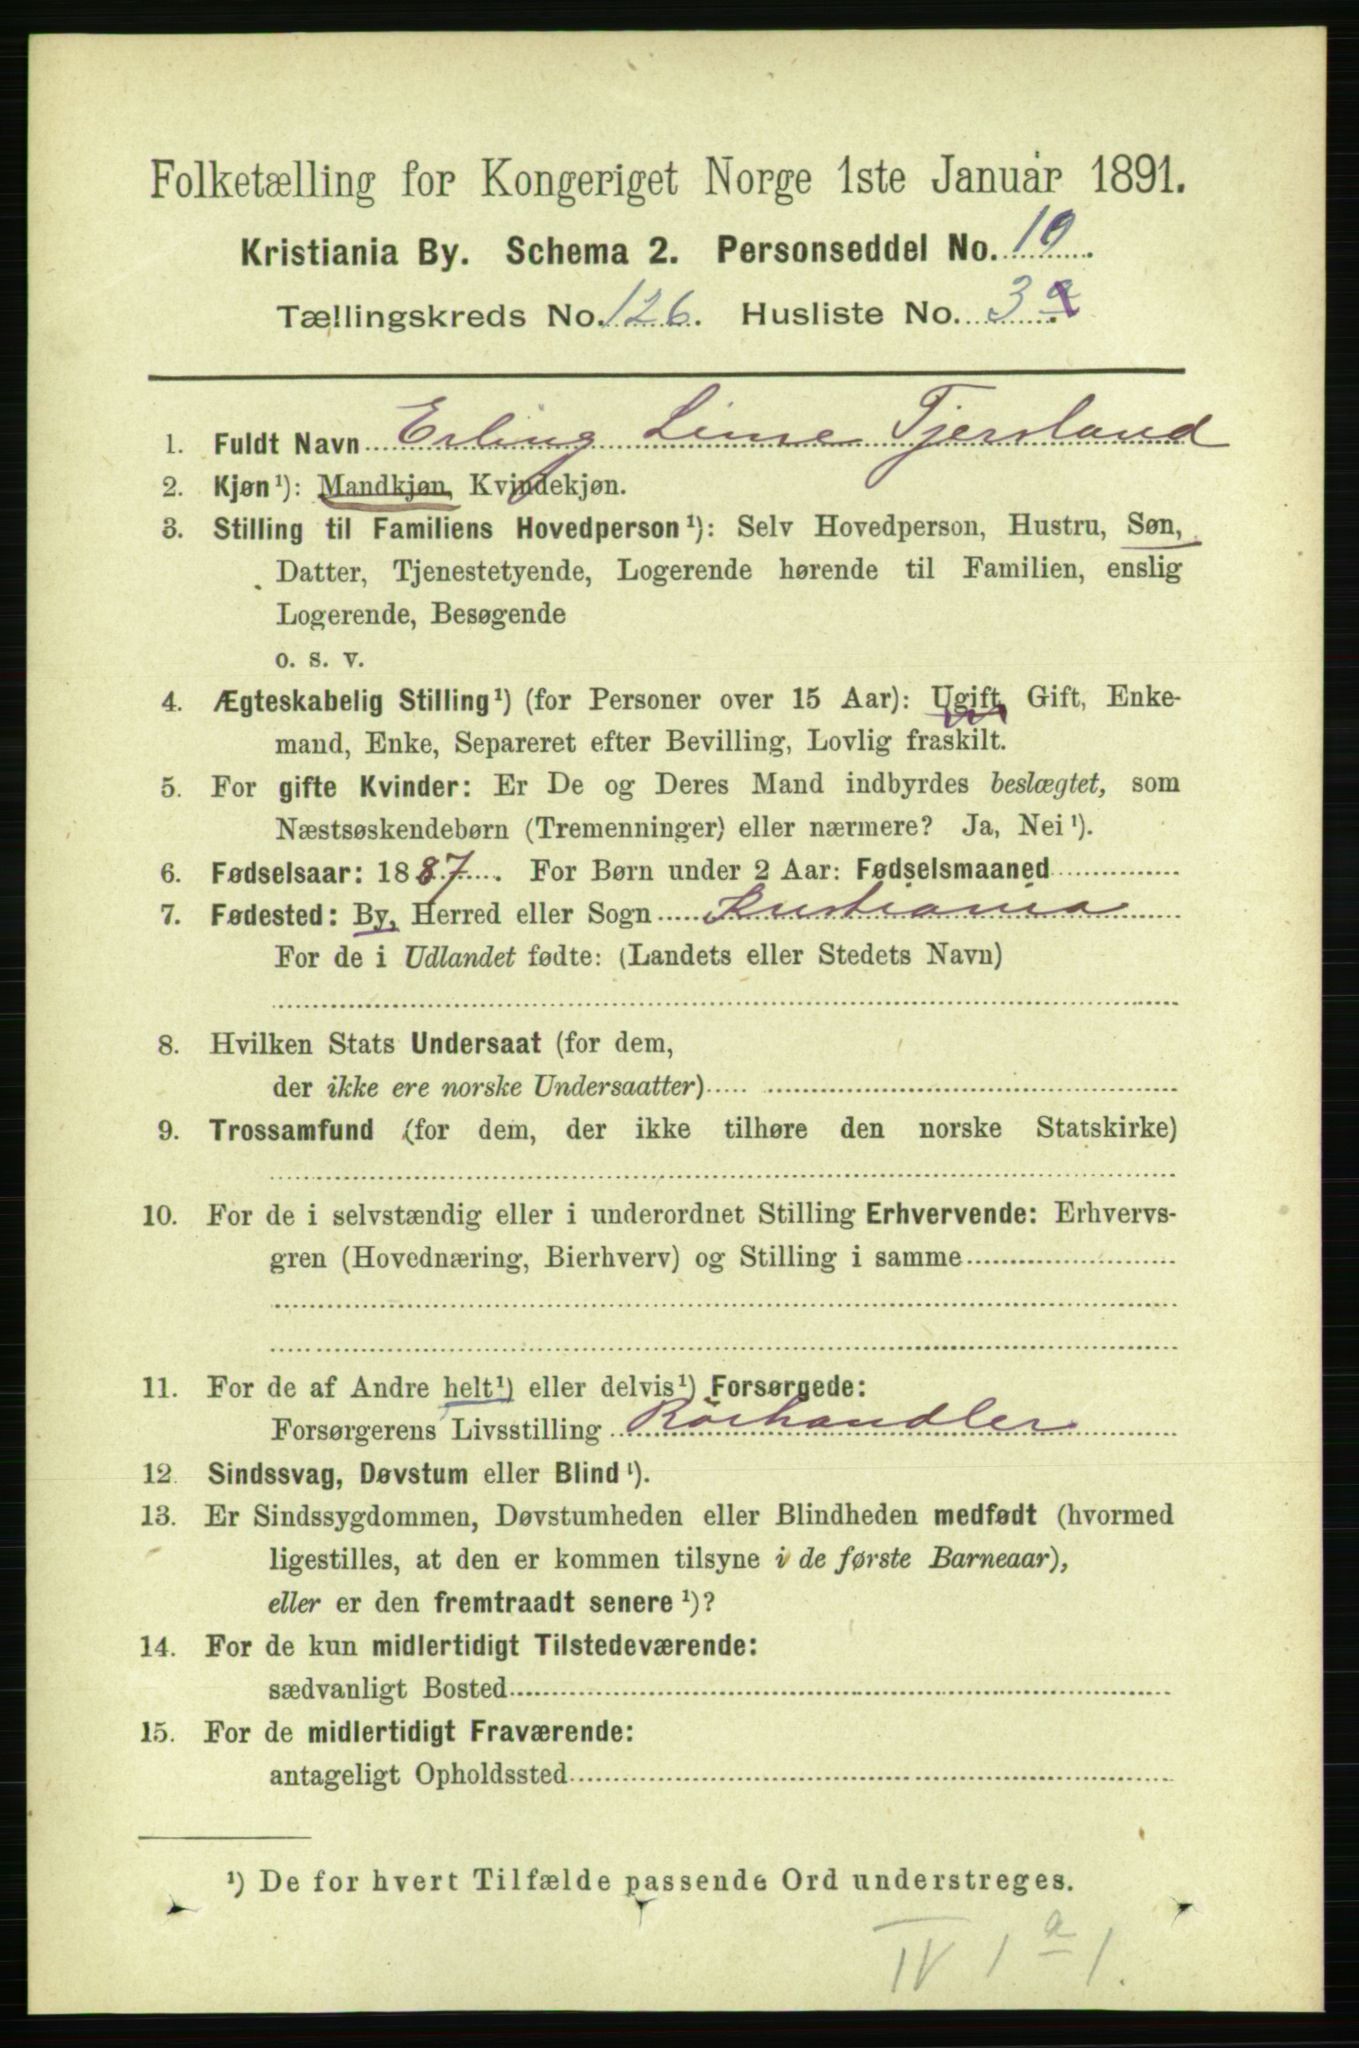 Folketælling for Kongeriget Norge 1ste Januar 1891.
Kristiania By. Schema 2. Personseddel No. 10.
Tællingskreds No. 126. Husliste No. 3 a
1. Fuldt Navn Erling Tjersland
2. Kjøn¹): Mandkjøn, Kvindekjøn.
3. Stilling til Familiens Hovedperson¹): Selv Hovedperson, Hustru, Søn,
Datter, Tjenestetyende, Logerende hørende til Familien, enslig
Logerende, Besøgende
o. s. v.
4. Ægteskabelig Stilling¹) (for Personer over 15 Aar): Ugift, Gift, Enke-
mand, Enke, Separeret efter Bevilling, Lovlig fraskilt.
5. For gifte Kvinder: Er De og Deres Mand indbyrdes beslægtet, som
Næstsøskendebørn (Tremenninger) eller nærmere? Ja, Nei¹).
6. Fødselsaar: 1887. For Børn under 2 Aar: Fødselsmaaned
7. Fødested: By, Herred eller Sogn Kristiania
For de i Udlandet fødte: (Landets eller Stedets Navn)
8. Hvilken Stats Undersaat (for dem,
der ikke ere norske Undersaatter)
9. Trossamfund (for dem, der ikke tilhøre den norske Statskirke)
10. For de i selvstændig eller i underordnet Stilling Erhvervende: Erhvervs-
gren (Hovednæring, Bierhverv) og Stilling i samme
11. For de af Andre helt¹) eller delvis¹) Forsørgede:
Forsørgerens Livsstilling Rörhandler
12. Sindssvag, Døvstum eller Blind¹).
13. Er Sindssygdommen, Døvstumheden eller Blindheden medfødt (hvormed
ligestilles, at den er kommen tilsyne i de første Barneaar),
eller er den fremtraadt senere¹)?
14. For de kun midlertidigt Tilstedeværende:
sædvanligt Bosted
15. For de midlertidigt Fraværende:
antageligt Opholdssted
¹) De for hvert Tilfælde passende Ord understreges.
IV 1 a 1.